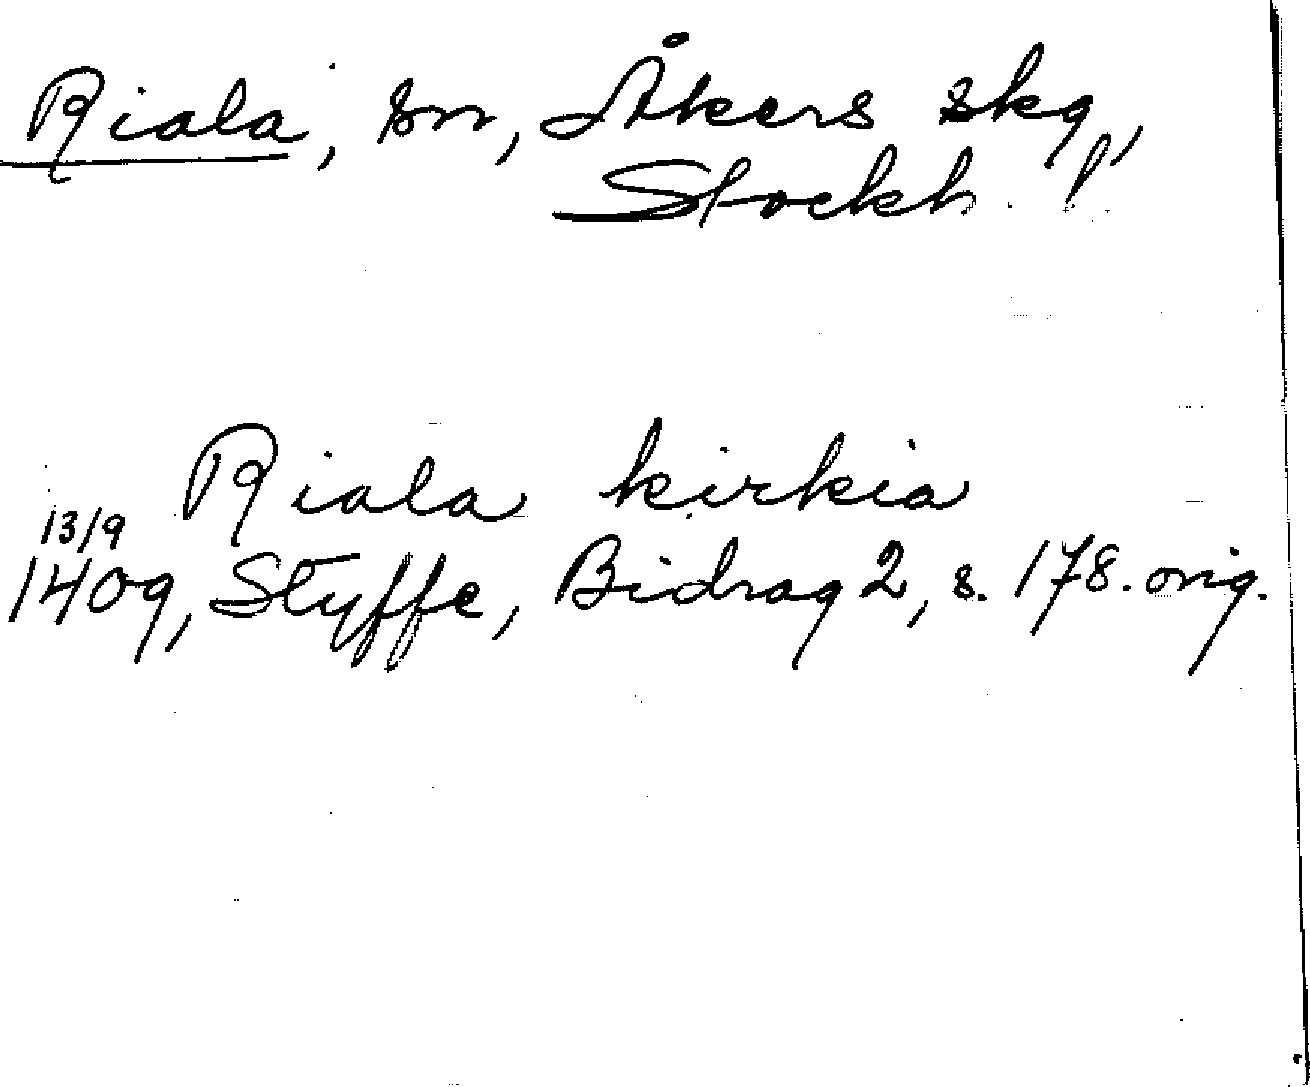 Riala, sn, Åkers skg,
Stockh. l,
Riala kirkia
13/9
1409, Styffe, Bidrag 2, s. 178. orig.